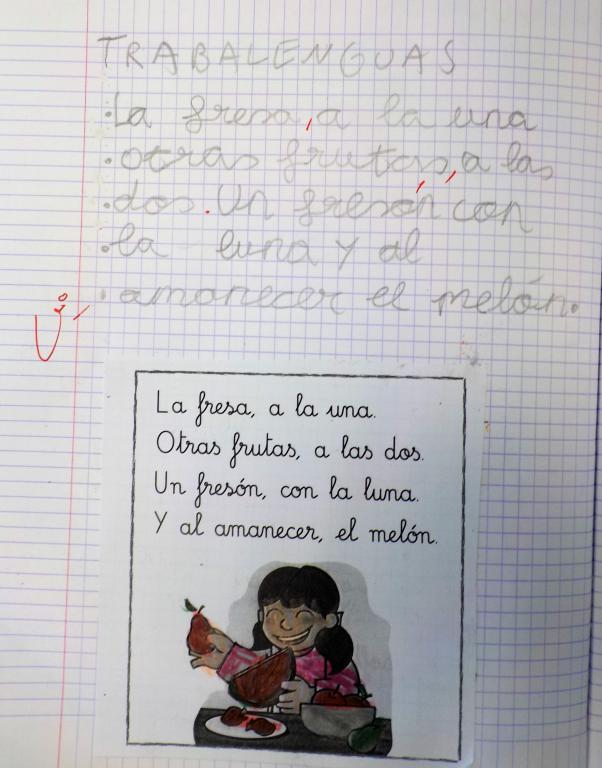 TRABALENGUAS
.La fresa, a la una
.otras frutas, a las
.dos. Un fresón, con
.la luna y al
.amanecer el melón.
La fresa, a la una.
Otras frutas, a las dos.
Un fresón, con la luna.
Y al amanecer, el melón.